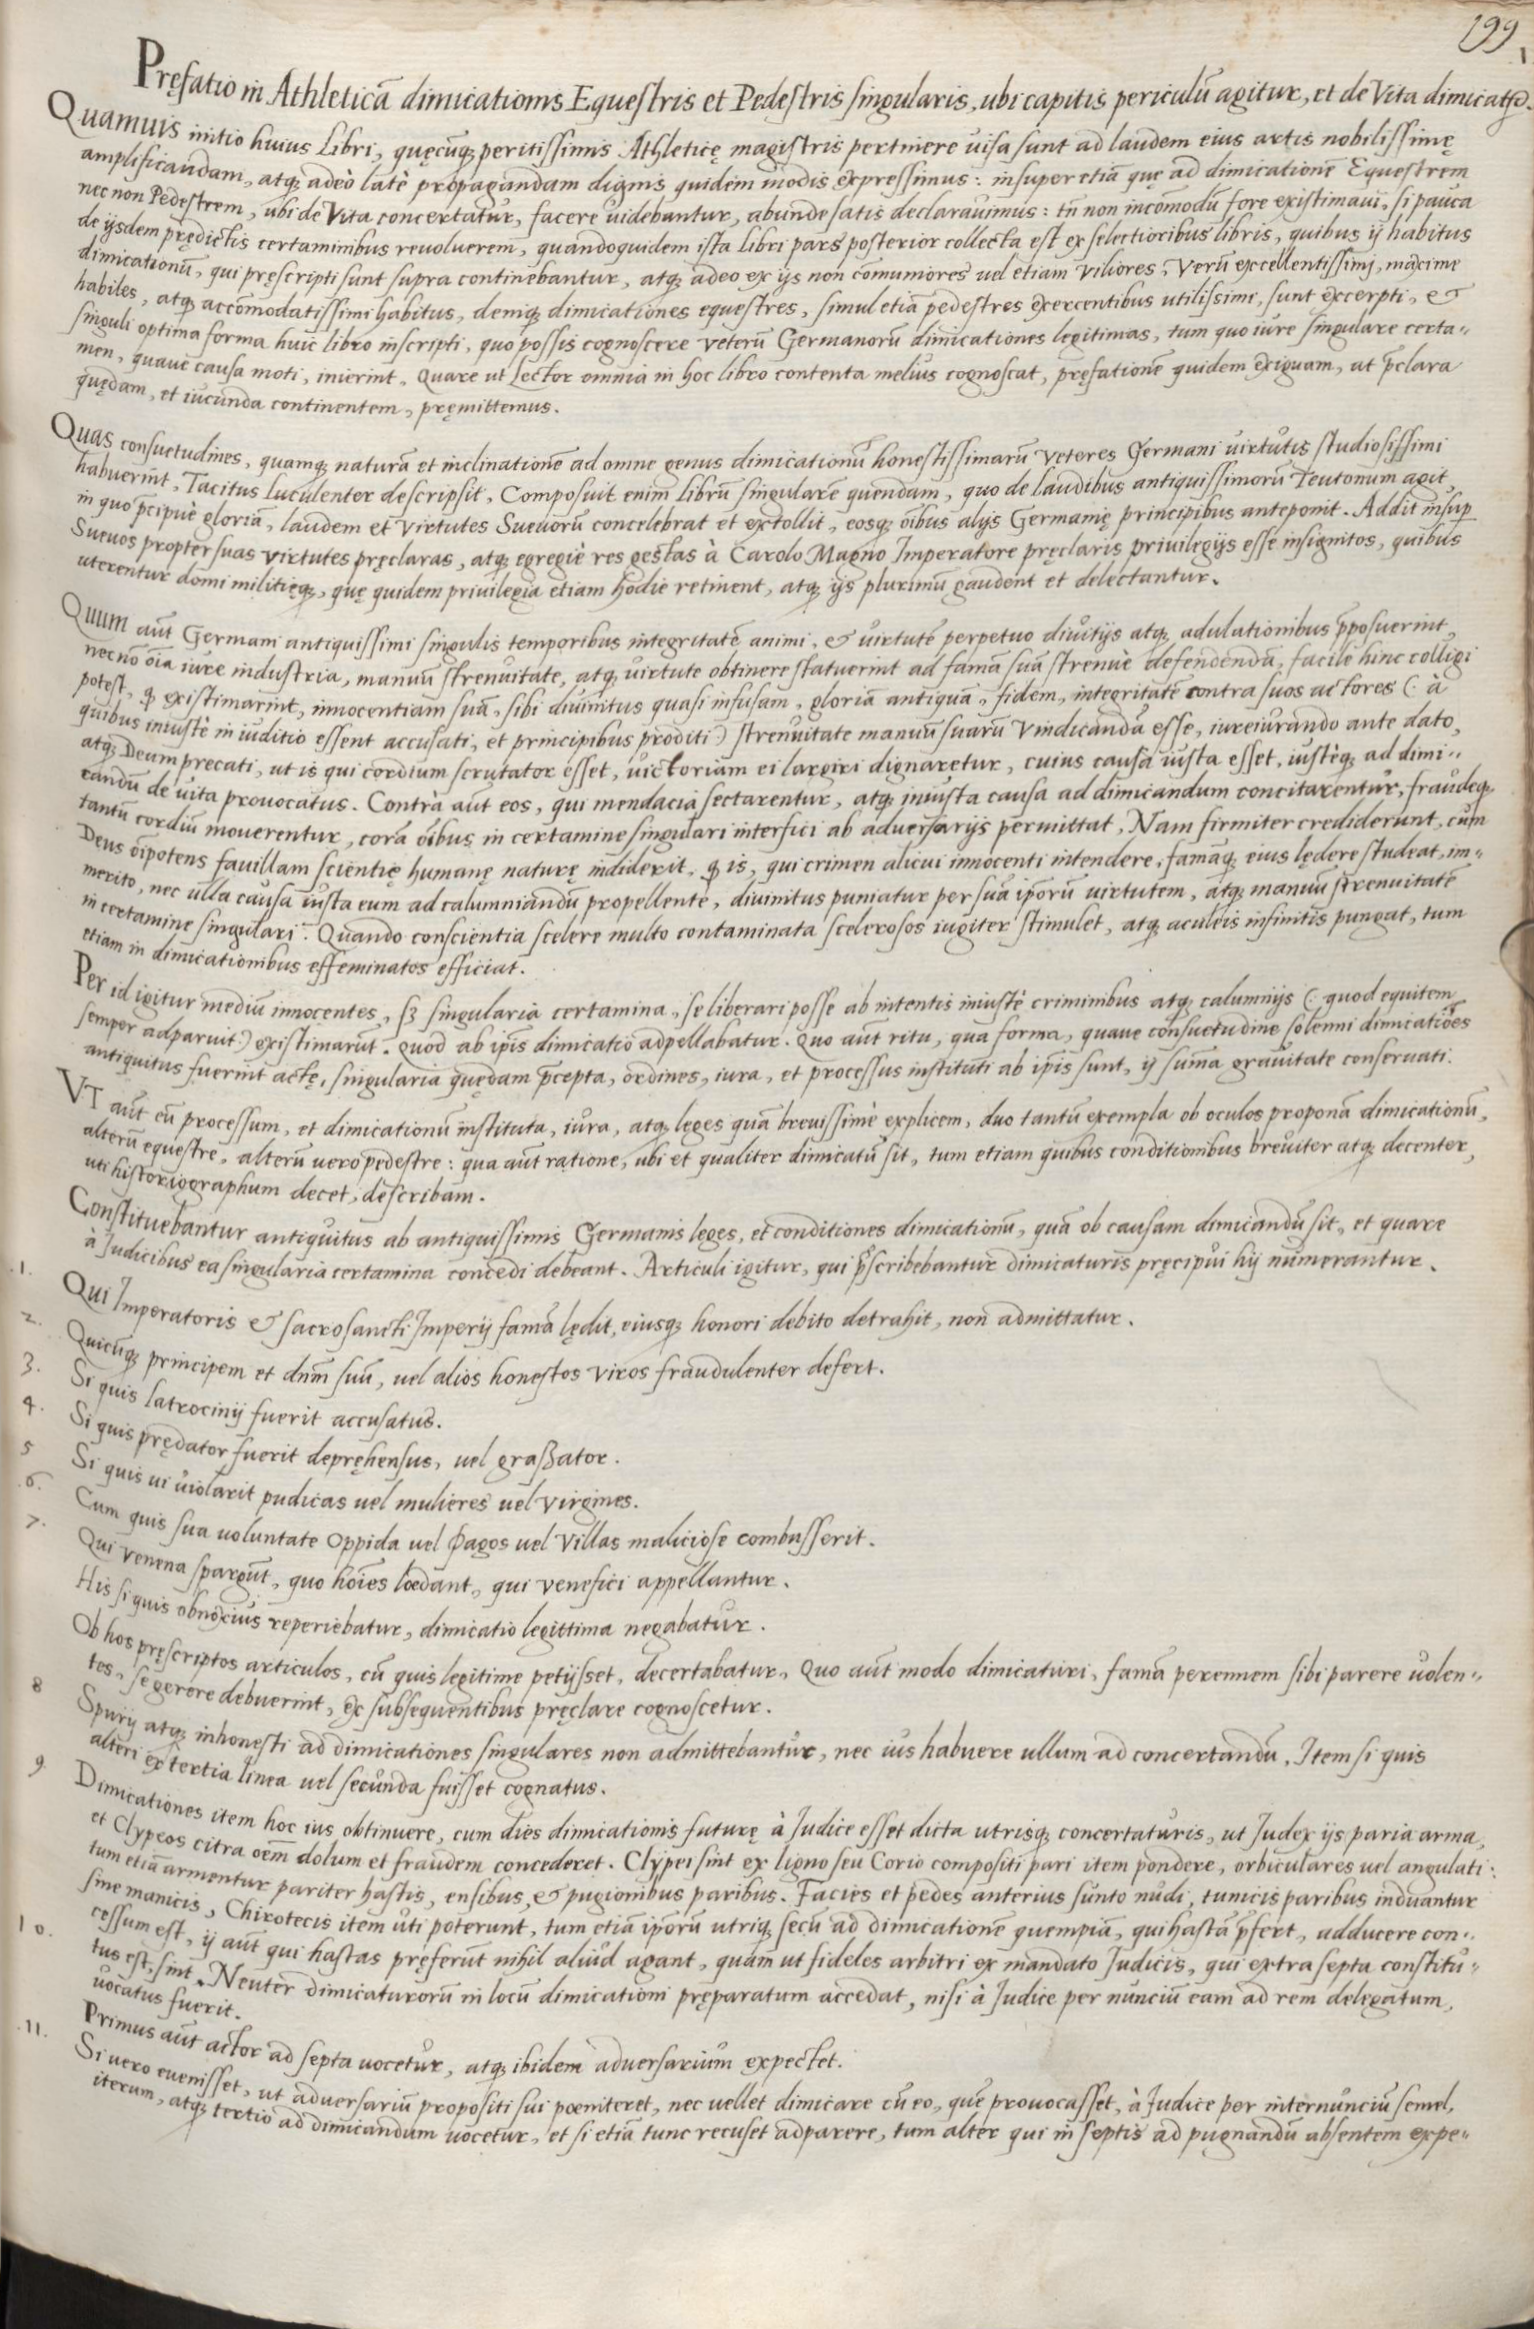 199
1
Pręfatio in Athleticā dimicationis Equestris et Pedestris singularis, ubi capitis periculū agitur, et de Vita dimicatʳ.
Quamuis initio huius Libri, quęcūq; peritissimis Athleticę magistris pertinere uisa sunt ad laudem eius artis nobilissimę
amplificandam, atq; adeò latè propagandam dignis quidem modis expressimus: insuper etiā quę ad dimicationē Equestrem
nec non Pedestrem, ubi de Vita concertatur, facere uidebantur, abunde satis declarauimus: tn̄ non incōmodū fore existimaui, si pauca
de ijsdem prędictis certaminibus reuoluerem, quandoquidem ista libri pars posterior collecta est ex selectioribus libris, quibus ij habitus
dimicationū, qui pręscripti sunt supra continebantur, atq; adeo ex ijs non cōmuniores uel etiam viliores, Verū excellentissimi, maxime
habiles, atq; accōmodatissimi habitus, deniq; dimicationes equestres, simul etiā pedestres exercentibus utilissimi, sunt excerpti, &
singuli optima forma huic libro inscripti, quo possis cognoscere veterū Germanorū dimicationes legitimas, tum quo iure singulare certa„
men, quaue causa moti, inierint. Quare ut Lector omnia in hoc libro contenta melius cognoscat, pręfationē quidem exiguam, at p̄clara
quędam, et iucunda continentem, pręmittemus.
Quas consuetudines, quamq; naturā et inclinationē ad omne genus dimicationū honestissimarū veteres Germani uirtutis studiosissimi
habuerint, Tacitus luculenter descripsit, Composuit enim librū singularē quendam, quo de laudibus antiquissimorū Teutonum agit,
in quo p̄cipuè gloriā, laudem et virtutes Sueuorū concelebrat et extollit, eosq; oībus alijs Germanię principibus anteponit. Addit insup̄
Sueuos propter suas virtutes pręclaras, atq; egregiè res gestas à Carolo Magno Imperatore pręclaris priuilegijs esse insignitos, quibus
uterentur domi militięq;, quę quidem priuilegia etiam hodie retinent, atq; ijs plurimū gaudent et delectantur.
Quum aūt Germani antiquissimi singulis temporibus integritatē animi, & uirtutē perpetuo diuitijs atq; adulationibus p̄posuerint,
nec nō oīa iure industria, manuū strenuitate, atq; uirtute obtinere statuerint ad famā suā strenuè defendendā, facile hinc colligi
potest, q; existimarint, innocentiam suā, sibi diuinitus quasi infusam, gloriā antiquā, fidem, integritatē contra suos actores (: à
quibus iniustè in iuditio essent accusati, et principibus proditi:) strenuitate manuū suarū Vindicandā esse, iureiurando ante dato,
atq; Deum precati, ut is qui cordium scrutator esset, uictoriam ei largiri dignaretur, cuius causa iusta esset, iustèq; ad dimi„
candū de uita prouocatus. Contrà aūt eos, qui mendacia sectarentur, atq; iniusta causa ad dimicandum concitarentur, fraudeq;
tantū cordiū mouerentur, corā oībus in certamine singulari interfici ab aduersarijs permittat, Nam firmiter crediderunt, cūm
Deus oīpotens fauillam scientię humanę naturę indiderit, q; is, qui crimen alicui innocenti intendere, famāq; eius lędere studeat, im„
merito, nec ulla causa iusta eum ad calumniandū propellente, diuinitus puniatur per suā ip̄orū uirtutem, atq; manuū strenuitatē
in certamine singulari. Quando conscientia scelere multo contaminata scelerosos iugiter stimulet, atq; aculeis infinitis pungat, tum
etiam in dimicationibus effeminatos efficiat.
Per id igitur mediū innocentes, sʒ singularia certamina, se liberari posse ab intentis iniustè criminibus atq; calumnijs (: quod equitem
semper adparuit:) existimarūt. Quod ab ip̄is dimicatio adpellabatur. Quo aūt ritu, qua forma, quaue consuetudine solenni dimicatiōes
antiquitus fuerint actę, singularia quędam p̄cepta, ordines, iura, et processus instituti ab ip̄is sunt, ij sum̄a grauitate conseruati.
VT aūt eū processum, et dimicationū instituta, iura, atq; leges quā breuissimè explicem, duo tantū exempla ob oculos proponā dimicationū,
alterū equestre, alterū uero pedestre: qua aūt ratione, ubi et qualiter dimicatū sit, tum etiam quibus conditionibus breuiter atq; decenter,
uti historiographum decet, describam.
Constituebantur antiquitus ab antiquissimis Germanis leges, et conditiones dimicationū, quā ob causam dimicandū sit, et quare
à Judicibus ea singularia certamina concedi debeant. Articuli igitur, qui p̄scribebantur dimicaturis pręcipui hij numerantur.
.1. Qui Imperatoris & sacrosancti Imperij famā lędit, eiusq; honori debito detrahit, non admittatur.
2. Quicūq; principem et dn̄m suū, uel alios honestos viros fraudulenter defert.
3. Si quis latrocinij fuerit accusatus.
4. Si quis prędator fuerit depręhensus, uel graßator.
5 Si quis ui uiolarit pudicas uel mulieres uel virgines.
.6. Cum quis sua uoluntate Oppida uel Pagos uel Villas maliciose combusserit.
7. Qui venena spargūt, quo hoīes lœdant, qui venefici appellantur.
His si quis obnoxius reperiebatur, dimicatio legittima negabatur.
Ob hos pręscriptos articulos, cū quis legitime petijsset, decertabatur, Quo aūt modo dimicaturi, famā perennem sibi parere uolen„
tes, se gerere debuerint, ex subsequentibus pręclare cognoscetur.
8 Spurij atq; inhonesti ad dimicationes singulares non admittebantur, nec ius habuere ullum ad concertandū. Item si quis
alteri ex tertia linea uel secunda fuisset cognatus.
9. Dimicationes item hoc ius obtinuere, cum dies dimicationis futurę à Judice esset dicta utrisq; concertaturis, ut Judex ijs paria arma,
et Clypeos citra oēm dolum et fraudem concederet. Clypei sint ex ligno seu Corio compositi pari item pondere, orbiculares uel angulati:
tum etiā armentur pariter hastis, ensibus, & pugionibus paribus. Facies et pedes anterius sunto nudi, tunicis paribus induantur
sine manicis, Chirotecis item uti poterunt, tum etiā ip̄orū utriq; secū ad dimicationē quempiā, qui hastā p̄fert, adducere con„
cessum est, ij aūt qui hastas pręferūt nihil aliud agant, quam ut fideles arbitri ex mandato Judicis, qui extra septa constitu„
10. tus est, sint. Neuter dimicaturorū in locū dimicationi pręparatum accedat, nisi à Judice per nunciū eam ad rem delegatum,
uocatus fuerit.
.11. Primus aūt actor ad septa uocetur, atq; ibidem aduersarium expectet.
Si uero euenisset, ut aduersariū propositi sui pœniteret, nec uellet dimicare cū eo, quē prouocasset, à Judice per internunciū semel,
iterum, atq; tertio ad dimicandum uocetur, et si etiā tunc recuset adparere, tum alter qui in septis ad pugnandū absentem expe„